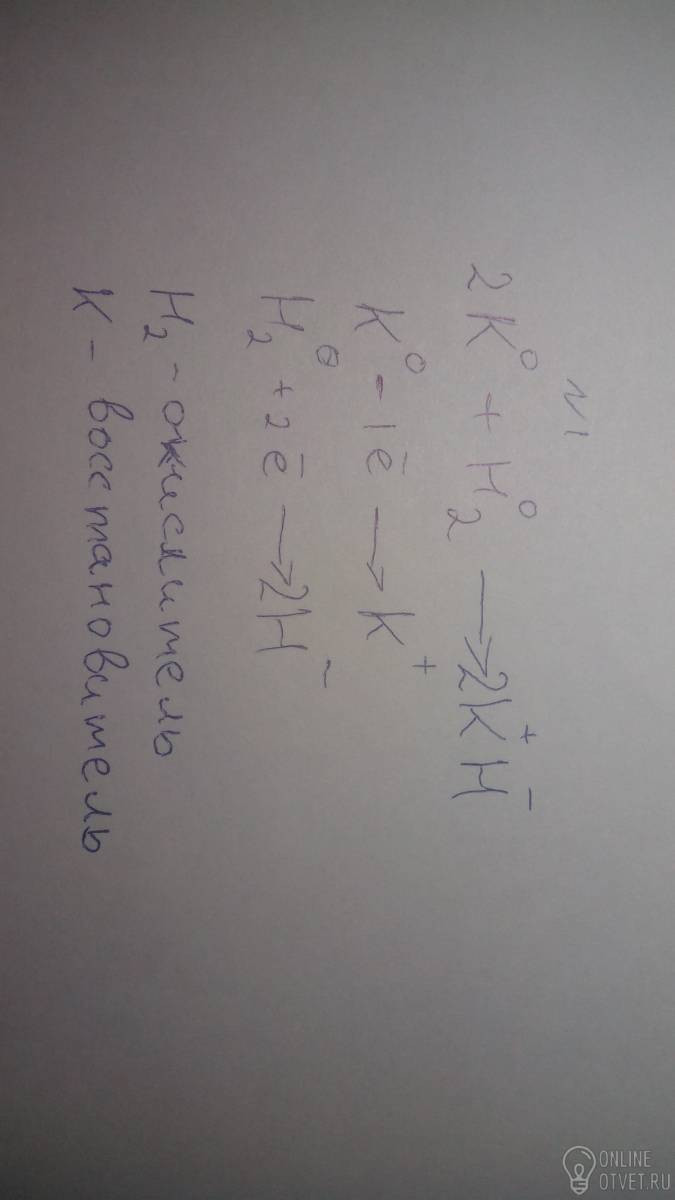 N1
2K⁰ + H₂⁰ → 2K⁺H⁻
K⁰ - 1ē → K⁺
H₂⁰ + 2ē → 2H⁻
H₂ - окислитель
K - восстановитель
ONLINE
OTVET.RU